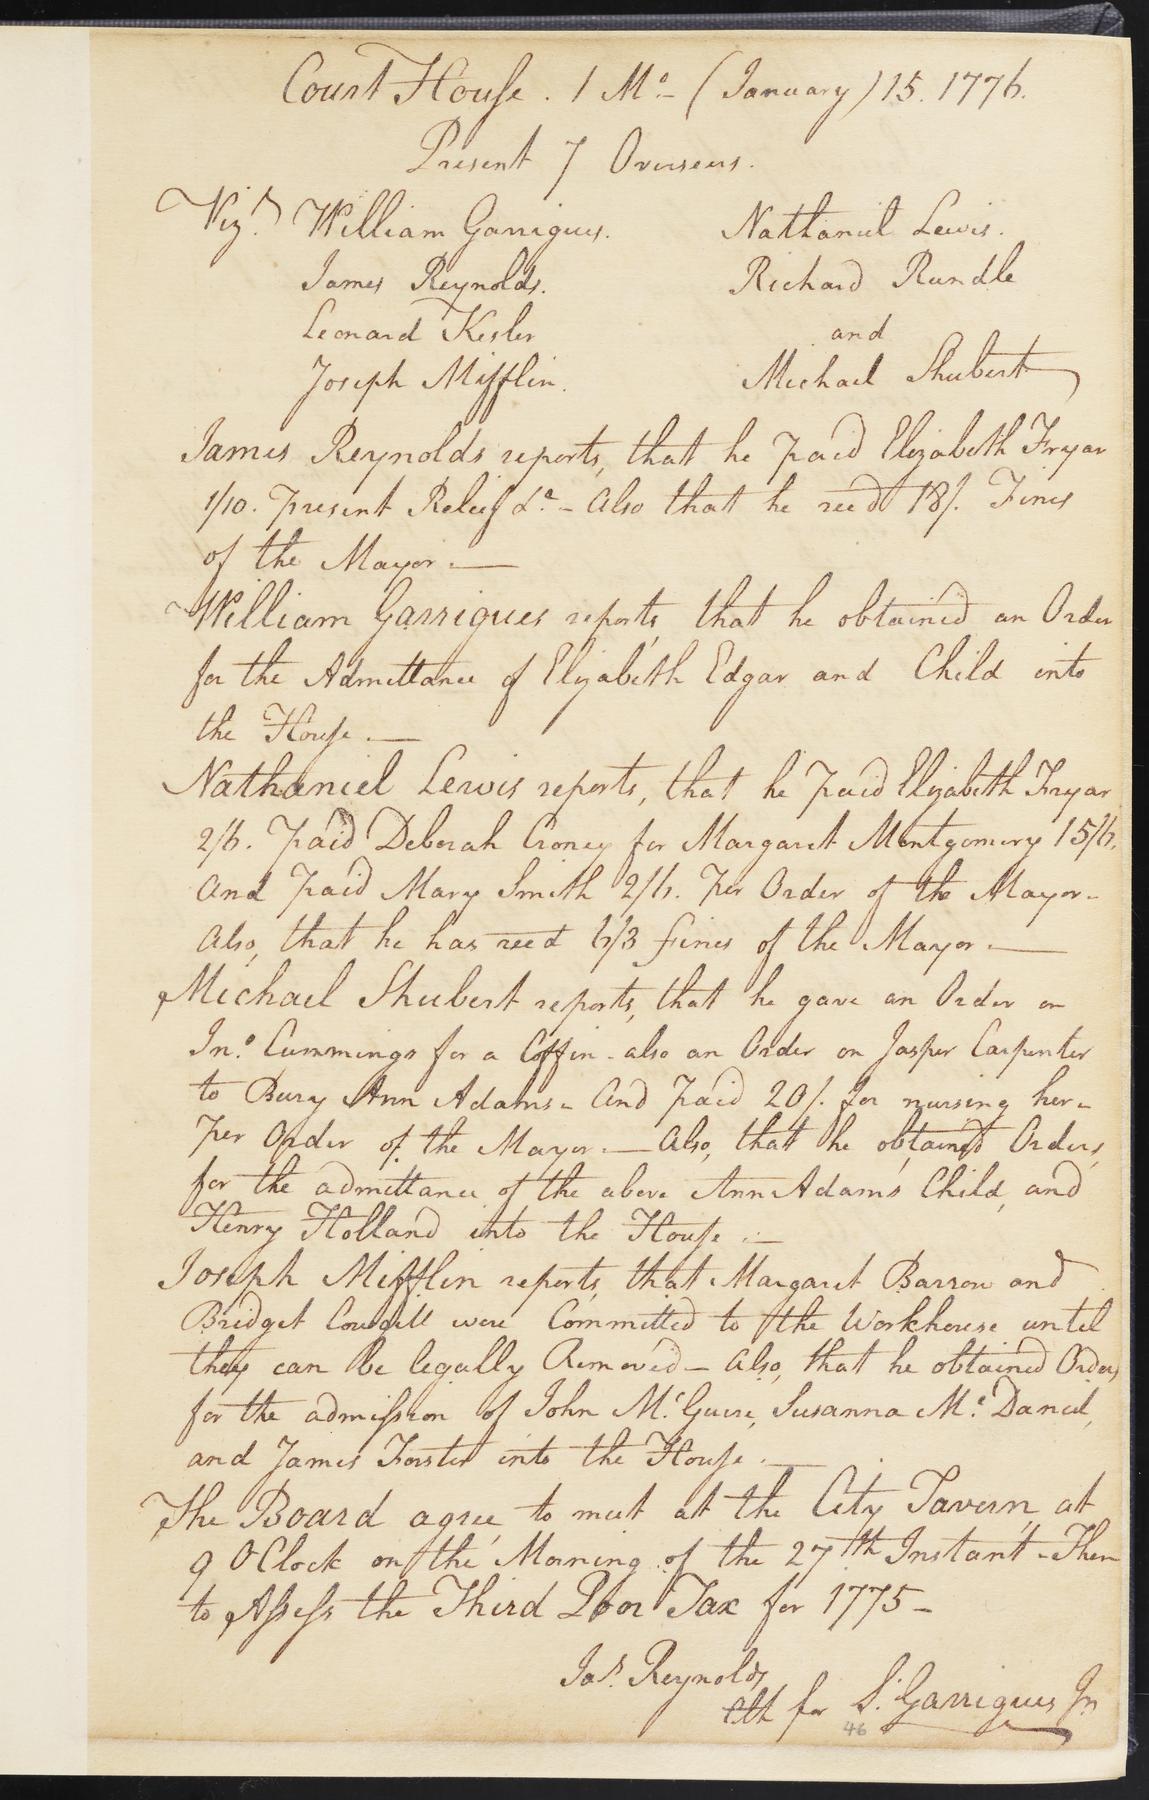 Court House. 1 Mo- (January) 15. 1776.
Present 7 Overseers.
Vizt. William Garrigues. Nathaniel Lewis.
James Reynolds. Richard Rundle
Leonard Kesler and
Joseph Mifflin. Michael Shubert
James Reynolds reports, that he paid Elizabeth Fryar
1/10. present Relief &c- Also that he recd 18/. Fines
of the Mayor.—
William Garrigues reports, that he obtained an Order
for the Admittance of Elizabeth Edgar and Child into
the House.—
Nathaniel Lewis reports, that he paid Elizabeth Fryar
2/6. paid Deborah Croney for Margaret Montgomery 15/6.
And paid Mary Smith 2/6. per Order of the Mayor-
Also, that he has recd 6/3 fines of the Mayor.—
Michael Shubert reports, that he gave an Order on
Jno. Cummings for a Coffin- also an Order on Jasper Carpenter
to Bury Ann Adams- And paid 20/. for nursing her-
per Order of the Mayor.— Also, that he obtained Orders,
for the admittance of the above Ann Adams Child, and
Henry Holland into the House.—
Joseph Mifflin reports, that Margaret Barron and
Bridget Cowgill were Committed to the Workhouse until
they can be legally Removed- Also, that he obtained Orders
for the admission of John McGuire, Susanna Mc.Daniel,
and James Forster into the House.—
The Board agree, to meet at the City Tavern, at
9 OClock on the Morning of the 27th Instant- Then
to Assess the Third Poor Tax for 1775-
Jas. Reynolds,
Clk for S. Garrigues Jr
46